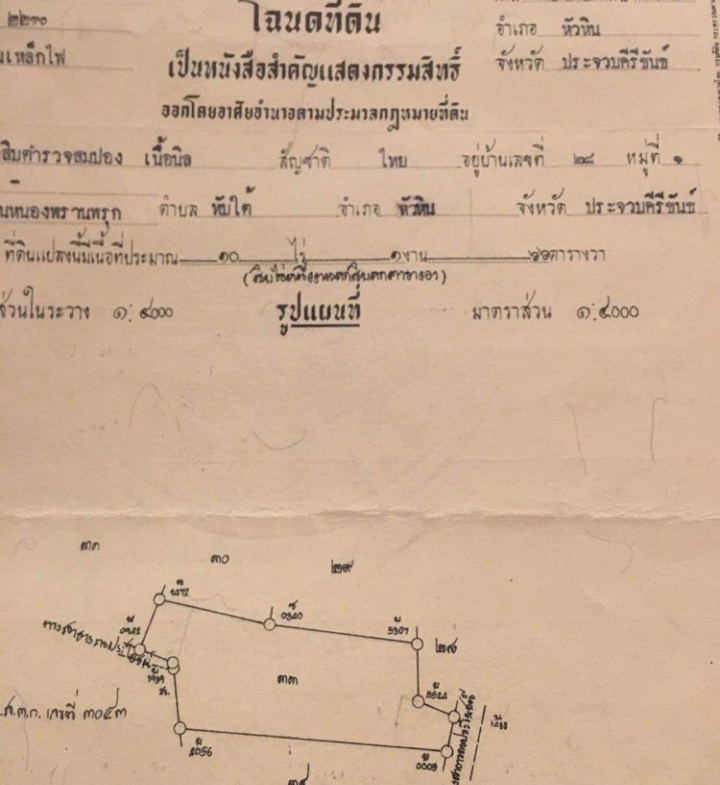 โฉนดที่ดิน
๒๒๓๐
อำเภอ หัวหิน
เหล็กไฟ
เป็นหนังสือสำคัญแสดงกรรมสิทธิ์
จังหวัด ประจวบคีรีขันธ์
ออกโดยอาศัยอำนาจตามประมวลกฎหมายที่ดิน
สิบตำรวจสมปอง เนื้อนิล สัญชาติ ไทย อยู่บ้านเลขที่ ๒๘ หมู่ที่ ๑
หนองพรานพรุก ตำบล ทับใต้ อำเภอ หัวหิน จังหวัด ประจวบคีรีขันธ์
ที่ดินแปลงนี้มีเนื้อที่ประมาณ ๑๐ ไร่ ๑ งาน ๖๖ ตารางวา
(สิบไร่หนึ่งงานหกสิบหกตารางวา)
ส่วนในระวาง ๑:๔๐๐๐
รูปแผนที่
มาตราส่วน ๑:๔๐๐๐
๓๑
๓๐
๒๙
5307
๒๘
๓๓
เลขที่ ๓๐๔๓